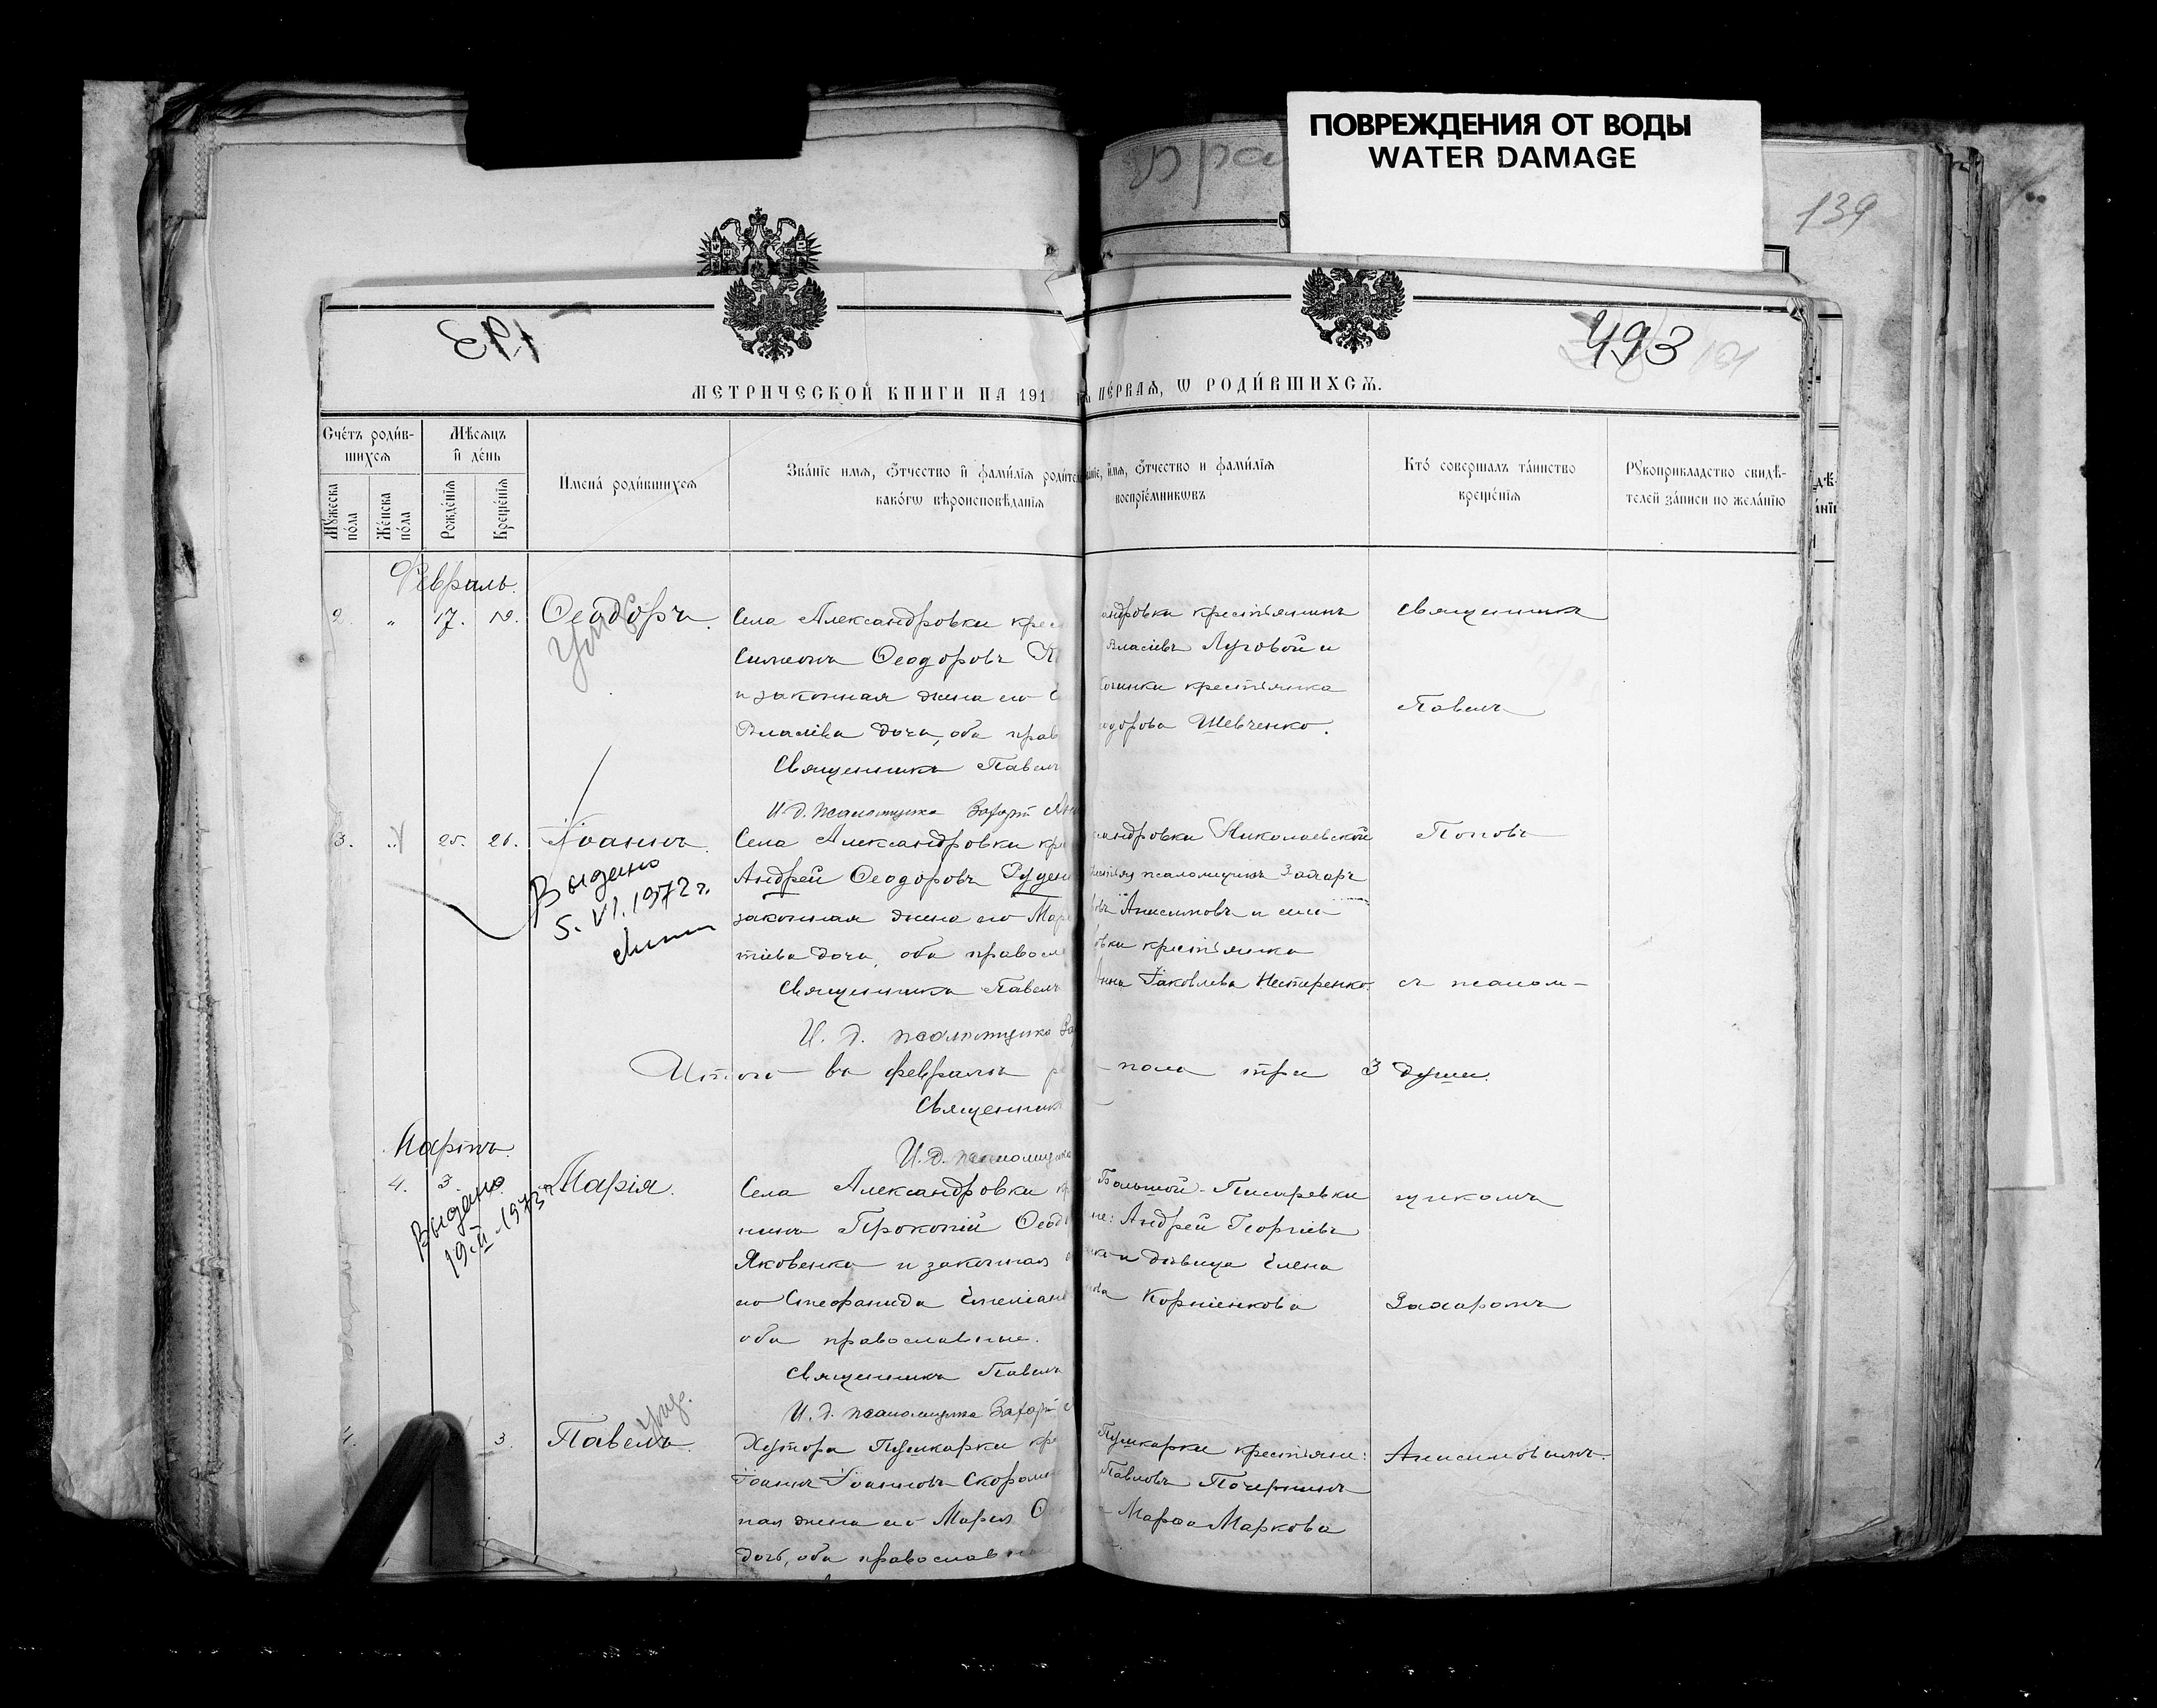 ПОВРЕЖДЕНИЯ ОТ ВОДЫ
WATER DAMAGE
139
193
493
МЕТРИЧЕСКОЙ КНИГИ НА 191
ПЕ́РВАѦ, Ѡ РОДИ́ВШИХСѦ.
Сче́тъ роди́в-
шихсѧ
Мѣ́сѧцъ
и҆ де́нь
Мꙋ́жеска
по́ла
Же́нска
по́ла
Рожде́нїѧ
Креще́нїѧ
И҆мена̀ роди́вшихсѧ
Зва́нїе имѧ, ѻ҆́тчество и҆ фамилїѧ родите
како́гѡ вѣроисповѣданїѧ
и҆́мѧ, ѻ҆́тчество и фами́лїѧ
воспрїе́мникѡвъ
Кто́ совершалъ та́инство
креще́нїѧ
Рꙋкоприкладство свидѣ́-
телей за́писи по жела́нїю
Февраль.
2. " 17. Ѳеодоръ.
Села Александровки крес
Симеонъ Ѳеодоровъ
и законная жена его
Власіева дочь, оба прав
Священникъ Павелъ
И. д. псаломщика Захарій
андровки крестьянинъ
Власіевъ Луговой и
крестьянка
Шевченко.
Священникъ
Павелъ
3. 25. 26. Іоаннъ.
Выдано
5.VI.1972 г.
Села Александровки кр
Андрей Ѳеодоровъ Руден
законная жена его Мар
тіева дочь, оба правосл
Священникъ Павелъ
И. д. псаломщика За
андровки Николаевской
псаломщикъ Захаръ
Анисимовъ и села
крестьянка
Анна Іаковлева Нестеренко.
Поповъ
съ псалом-
Итого въ февралѣ
пола три 3 души.
Священникъ
И. д. псаломщика
Мартъ.
4. 3 Марія.
Выдано
19.II.1973 г.
Села Александровки к
нинъ Прокопій Ѳеод
Яковенко и законная
его Стефанида Емеліан
оба православные.
Священникъ Павелъ
И. д. псаломщика Захарій
Большой-Писаревки
не: Андрей Георгіевъ
и дѣвица Елена
Корніенкова
щикомъ
Захаромъ
4. 3. Павелъ.
Хутора Пушкарки кре
Іоаннъ Іоанновъ
ная жена его Марія
дочь, оба православ
Пушкарки крестьяне:
Павловъ
Марѳа Маркова
Анисимовымъ.